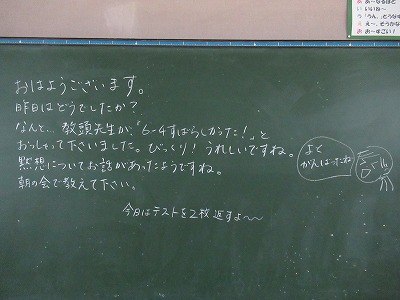 あ あ～なるほど
い いいね～
う 「うん。」とうなず
え え～、そうかな
お お～すごい！
おはようございます。
昨日はどうでしたか？
なんと… 教頭先生が、「6-4すばらしかった！」と
おっしゃって下さいました。びっくり！うれしいですね。
黙想についてお話があったようですね。
朝の会で教えて下さい。
がんばったね
今日はテストを2枚返すよ～～